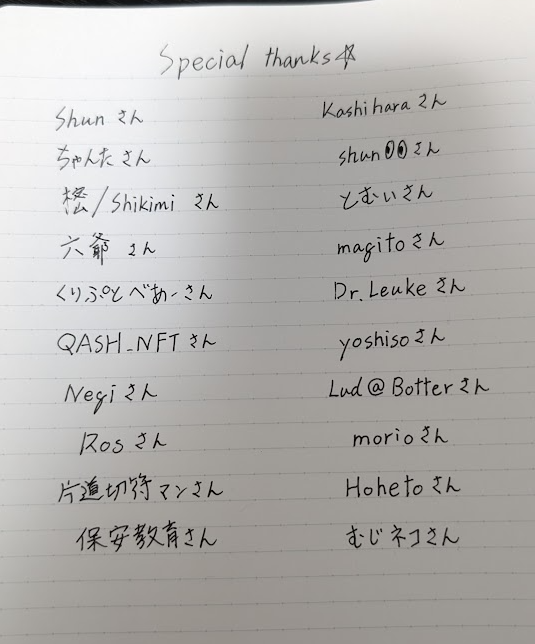 Special thanks☆
Shun さん
ちゃんたさん
樒/Shikimi さん
六爺 さん
くりぷとべあーさん
QASH_NFT さん
Negi さん
Ros さん
片道切符マンさん
保安教育さん
Kashihara さん
shun👀さん
とむぃさん
magito さん
Dr.Leuke さん
yoshiso さん
Lud@Botter さん
morio さん
Hoheto さん
むじネコさん